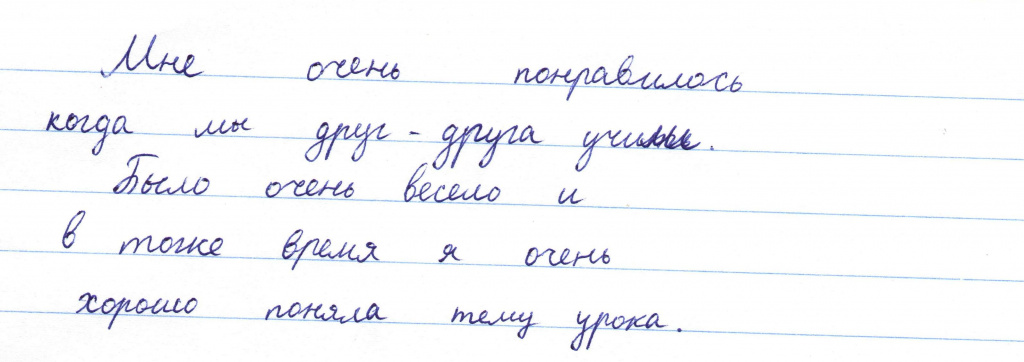 Мне очень понравилось
когда мы друг - друга учили.
Было очень весело и
в тоже время я очень
хорошо поняла тему урока.